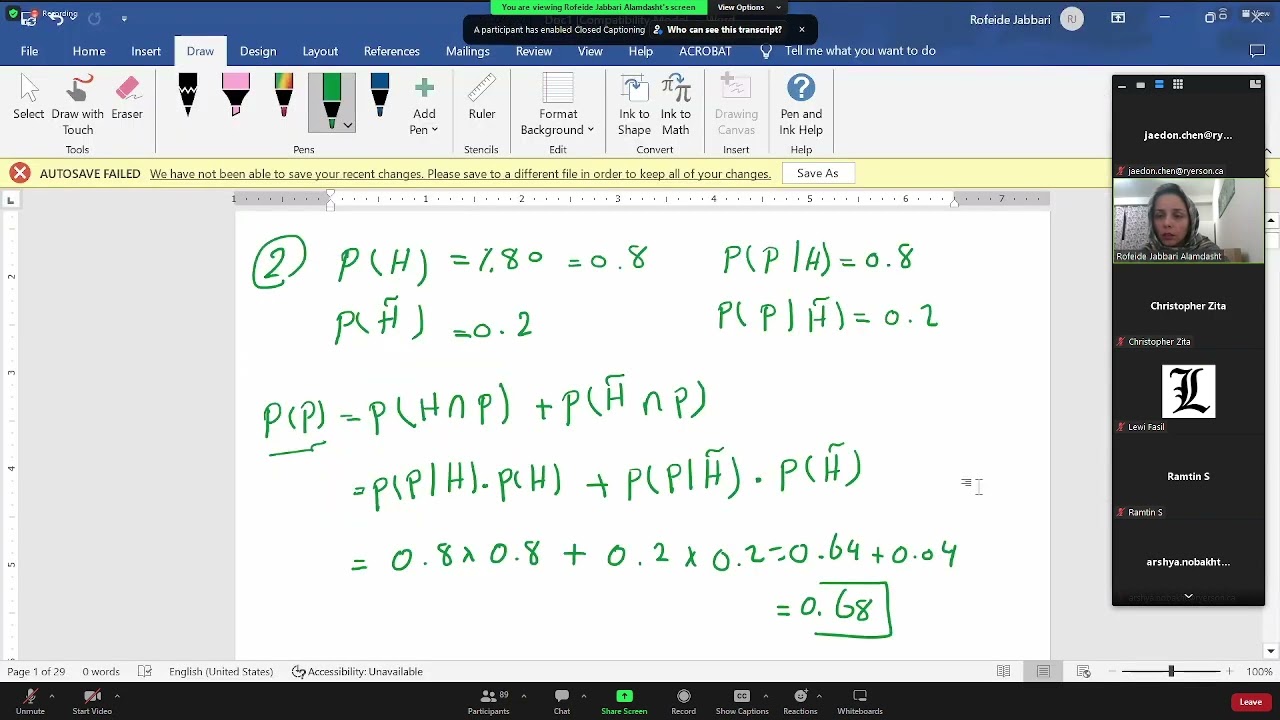 You are viewing Rofeide Jabbari Alamdasht's screen
View Options
Recording
A participant has enabled Closed Captioning
Who can see this transcript?
Rofeide Jabbari
RJ
View
File
Home
Insert
Draw
Design
Layout
References
Mailings
Review
View
Help
ACROBAT
Tell me what you want to do
Select
Draw with Touch
Eraser
Add Pen
Ruler
Format Background
Ink to Shape
Ink to Math
Drawing Canvas
Pen and Ink Help
Tools
Pens
Stencils
Edit
Convert
Insert
Help
AUTOSAVE FAILED We have not been able to save your recent changes. Please save to a different file in order to keep all of your changes. Save As
1 1 2 3 4 5 6 7
2
3
4
5
② P(H) = %80 = 0.8 P(P|H) = 0.8
P(H̃) = 0.2 P(P|H̃) = 0.2
P(P) = P(H∩P) + P(H̃∩P)
= P(P|H).P(H) + P(P|H̃).P(H̃)
= 0.8 × 0.8 + 0.2 × 0.2 = 0.64 + 0.04
= 0.68
jaedon.chen@ry...
jaedon.chen@ryerson.ca
Rofeide Jabbari Alamdasht
Christopher Zita
Christopher Zita
L
Lewi Fasil
Ramtin S
Ramtin S
arshya.nobakht...
Page 1 of 29
0 words
English (United States)
Accessibility: Unavailable
100%
Unmute
Start Video
Participants
89
Chat
Share Screen
Record
CC
Show Captions
Reactions
Whiteboards
Leave